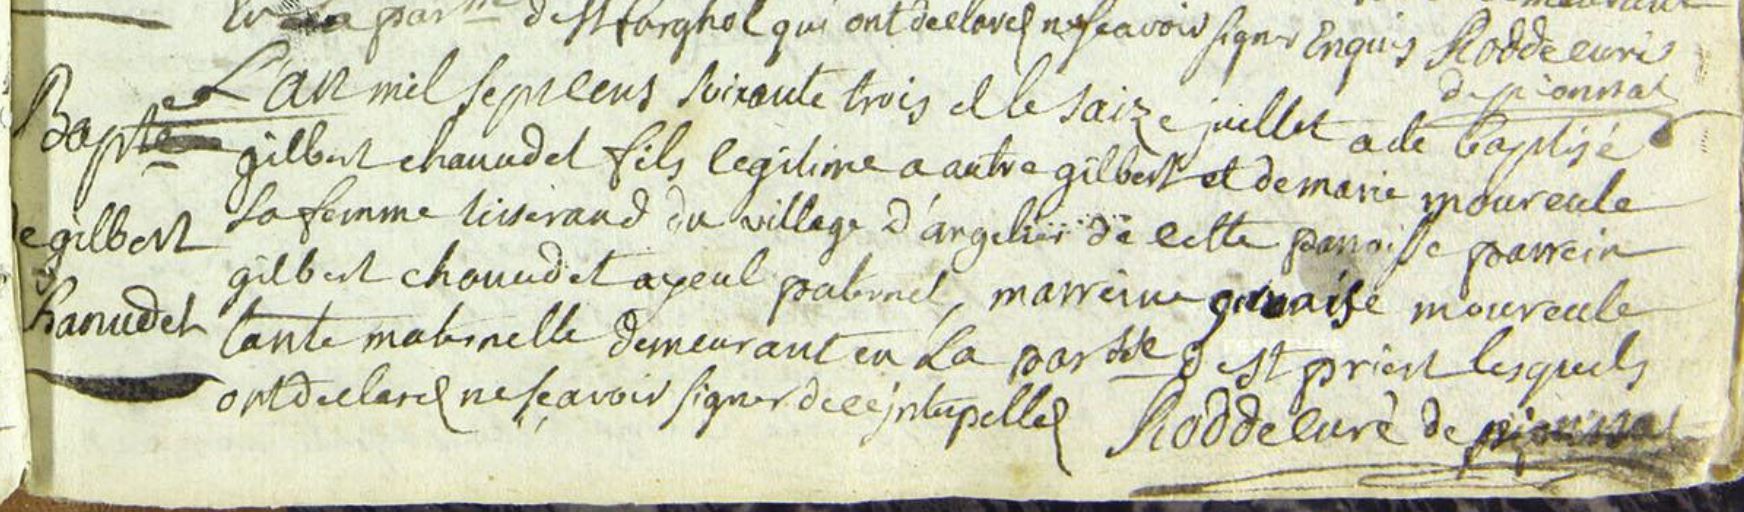 parsse de St farghol qui ont declaré ne scavoir signer Enquis Rodde curé
de pionnat
L'an mil sept cens soixante trois et le saize juillet a ete baptisé
Bapte gilbert chanudet fils legitime a autre gilbert et de marie moureule
sa femme tisserand du village d'angelier de cette parroisse parrein
de gilbert gilbert chanudet ayeul paternel, marreine moureule
Chanudet tante maternelle demeurant en la parsse de St priest lesquels
ont declaré ne scavoir signer de ce jnterpellé Rodde curé de pionnat